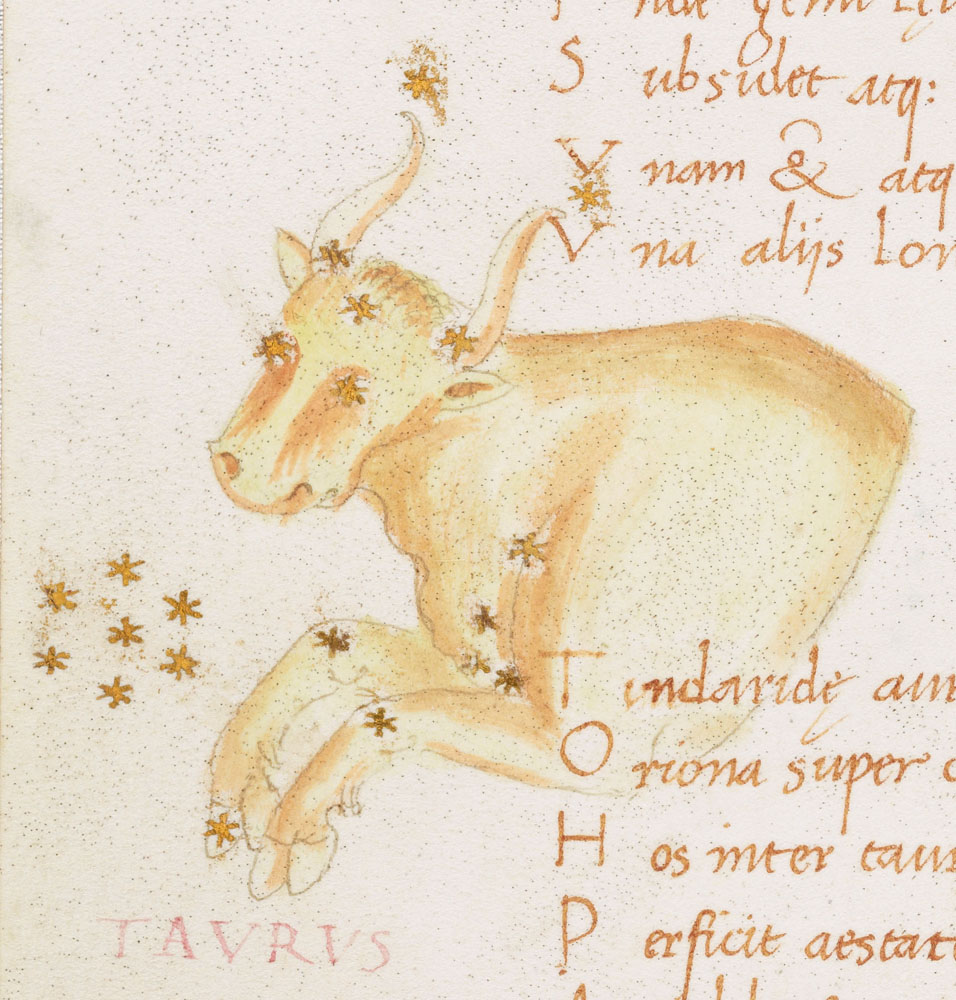 S ubsidet atq:
V nam & atq
V na alijs lon
T indaridę aur
O riona super c
H os inter taur
P erficit aestat
TAVRVS